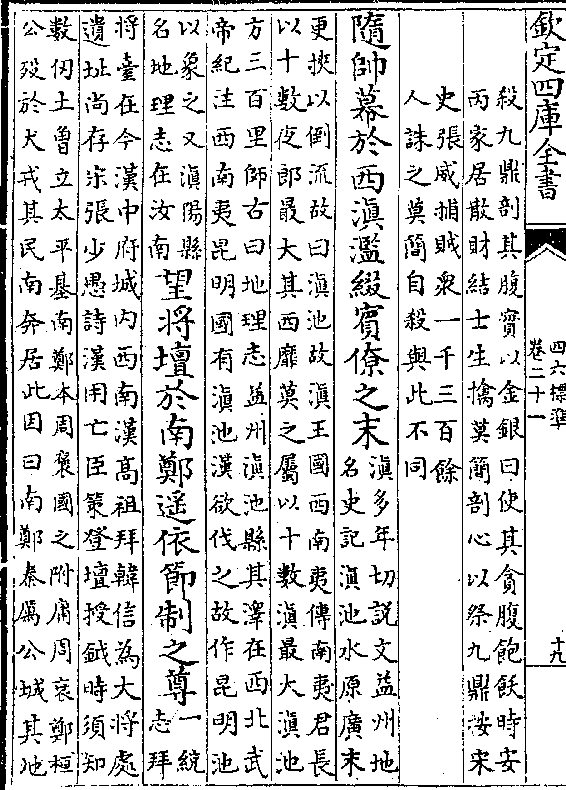 欽定四庫全書
四六標準
卷二十一
十九
殺九鼎剖其腹實以金銀曰使其貪腹飽飫時安
丙家居散財結士生擒莫簡剖心以祭九鼎按宋
史張威捕賊衆一千三百餘
人誅之莫簡自殺與此不同
隋帥幕於西滇濫綴賓僚之末
滇多年切說文益州地
名史記滇池水原廣末
更挾以倒流故曰滇池故滇王國西南夷傳南夷君長
以十數夜郎最大其西靡莫之屬以十數滇最大滇池
方三百里師古曰地理志益州滇池縣其澤在西北武
帝紀注西南夷昆明國有滇池漢欲伐之故作昆明池
以象之又滇陽縣
名地理志在汝南
望將壇於南鄭遥依節制之尊
一統
志拜
將臺在今漢中府城內西南漢高祖拜韓信為大將處
遺址尚存宋張少愚詩漢用亡臣策登壇授鉞時須知
數仞土曾立太平基南鄭本周褒國之附庸周衰鄭桓
公歿於犬戎其民南奔居此因曰南鄭秦厲公城其地